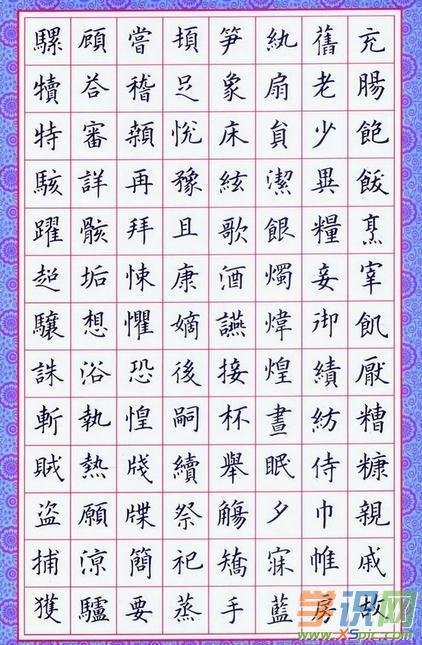 充腸飽飫烹宰飢厭糟糠親戚故
舊老少異糧妾御績紡侍巾帷房
紈扇員潔銀燭煒煌晝眠夕寐藍
笋象床絃歌酒讌接杯舉觴矯手
頓足悅豫且康嫡後嗣續祭祀蒸
嘗稽顙再拜悚懼恐惶牋牒簡要
顧答審詳骸垢想浴執熱願涼驢
騾犢特駭躍超驤誅斬賊盜捕獲
学识网
www.XSpic.com